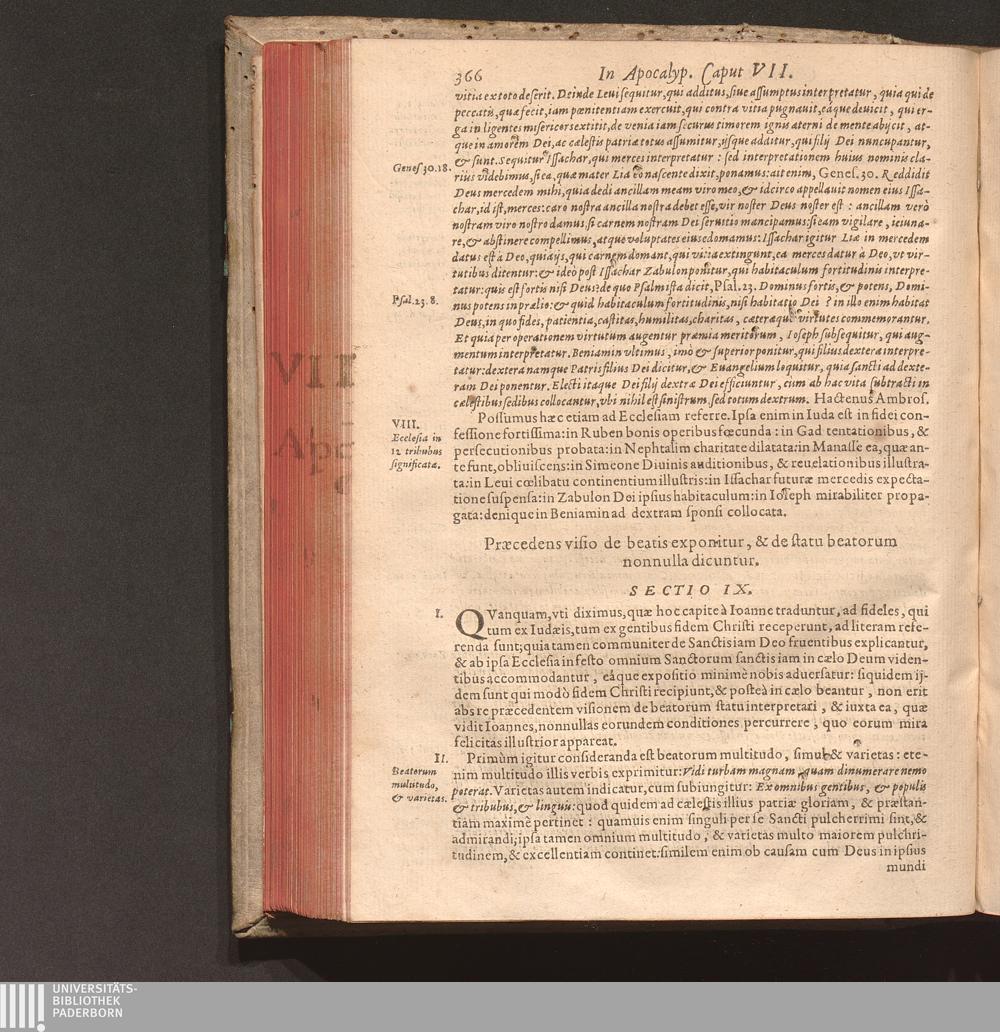 366 In Apocalyp. Caput VII.
vitia ex toto deserit. Deinde Leui sequitur, qui additus, siue assumptus interpretatur, quia qui de
peccatis, quæ fecit, iam pœnitentiam exercuit, qui contra vitia pugnauit, eáque deuicit, qui er-
ga indigentes misericors extitit, de venia iam securus timorem ignis æterni de mente abijcit, at-
que in amorem Dei, ac cælestis patriæ totus assumitur, ijsque additur, qui filij Dei nuncupantur,
& sunt. Sequitur Issachar, qui merces interpretatur: sed interpretationem huius nominis cla-
Genes. 30. 18.
rius videbimus, si ea, quæ mater Lia eo nascente dixit, ponamus: ait enim, Genes. 30. Reddidit
Deus mercedem mihi, quia dedi ancillam meam viro meo, & idcirco appellauit nomen eius Issa-
char, id est, merces: caro nostra ancilla nostra debet esse, vir noster Deus noster est: ancillam verò
nostram viro nostro damus, si carnem nostram Dei seruitio mancipamus: si eam vigilare, ieiuna-
re, & abstinere compellimus, atque voluptates eius edomamus: Issachar igitur Liæ in mercedem
datus est à Deo, quia ijs, qui carnem domant, qui vitia extingunt, ea merces datur à Deo, vt vir-
tutibus ditentur: & ideò post Issachar Zabulon ponitur, qui habitaculum fortitudinis interpre-
tatur: quis est fortis nisi Deus? de quo Psalmista dicit, Psal. 23. Dominus fortis, & potens, Domi-
Psal. 23. 8.
nus potens in prælio: & quid habitaculum fortitudinis, nisi habitatio Dei? in illo enim habitat
Deus, in quo fides, patientia, castitas, humilitas, charitas, cæteræque virtutes commemorantur.
Et quia per operationem virtutum augentur præmia meritorum, Ioseph subsequitur, qui aug-
mentum interpretatur. Beniamin vltimus, imò & superior ponitur, qui filius dexteræ interpre-
tatur: dextera namque Patris filius Dei dicitur, & Euangelium loquitur, quia sancti ad dexte-
ram Dei ponentur. Electi itaque Dei filij dextræ Dei efficiuntur, cùm ab hac vita subtracti in
cælestibus sedibus collocantur, vbi nihil est sinistrum, sed totum dextrum. Hactenus Ambros.
VIII.
Ecclesia in
12 tribubus
significata.
Possumus hæc etiam ad Ecclesiam referre. Ipsa enim in Iuda est in fidei con-
fessione fortissima: in Ruben bonis operibus fœcunda: in Gad tentationibus, &
persecutionibus probata: in Nephtalim charitate dilatata: in Manasse ea, quæ an-
te sunt, obliuiscens: in Simeone Diuinis auditionibus, & reuelationibus illustra-
ta: in Leui cœlibatu continentium illustris: in Issachar futuræ mercedis expecta-
tione suspensa: in Zabulon Dei ipsius habitaculum: in Ioseph mirabiliter propa-
gata: denique in Beniamin ad dextram sponsi collocata.
Præcedens visio de beatis exponitur, & de statu beatorum
nonnulla dicuntur.
SECTIO IX.
I.
QVanquam, vti diximus, quæ hoc capite à Ioanne traduntur, ad fideles, qui
tum ex Iudæis, tum ex gentibus fidem Christi receperunt, ad literam refe-
renda sunt; quia tamen communiter de Sanctis iam Deo fruentibus explicantur,
& ab ipsa Ecclesia in festo omnium Sanctorum sanctis iam in cælo Deum viden-
tibus accommodantur, eáque expositio minimè nobis aduersatur: siquidem ij-
dem sunt qui modò fidem Christi recipiunt, & posteà in cælo beantur, non erit
abs re præcedentem visionem de beatorum statu interpretari, & iuxta ea, quæ
vidit Ioannes, nonnullas eorundem conditiones percurrere, quo eorum mira
felicitas illustrior appareat.
II.
Beatorum
multitudo,
& varietas.
Primùm igitur consideranda est beatorum multitudo, simul & varietas: ete-
nim multitudo illis verbis exprimitur: Vidi turbam magnam, quam dinumerare nemo
poterat. Varietas autem indicatur, cum subiungitur: Ex omnibus gentibus, & populis
& tribubus, & linguis: quod quidem ad cælestis illius patriæ gloriam, & præstan-
tiam maximè pertinet: quamuis enim singuli per se Sancti pulcherrimi sint, &
admirandi; ipsa tamen omnium multitudo, & varietas multo maiorem pulchri-
tudinem, & excellentiam continet: similem enim ob causam cum Deus in ipsius
mundi
VII
UNIVERSITÄTS-
BIBLIOTHEK
PADERBORN